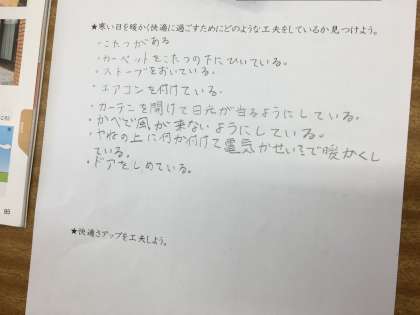 ★寒い日を暖かく快適に過ごすためにどのような工夫をしているか見つけよう。
・こたつがある
・カーペットをこたつの下にひいている。
・ストーブをおいている。
・エアコンを付けている。
・カーテンを開けて日光が当るようにしている。
・かべで風が来ないようにしている。
・やねの上に何か付けて電気かせいきで暖かくし
ている。
・ドアをしめている。
★快適さアップを工夫しよう。
95